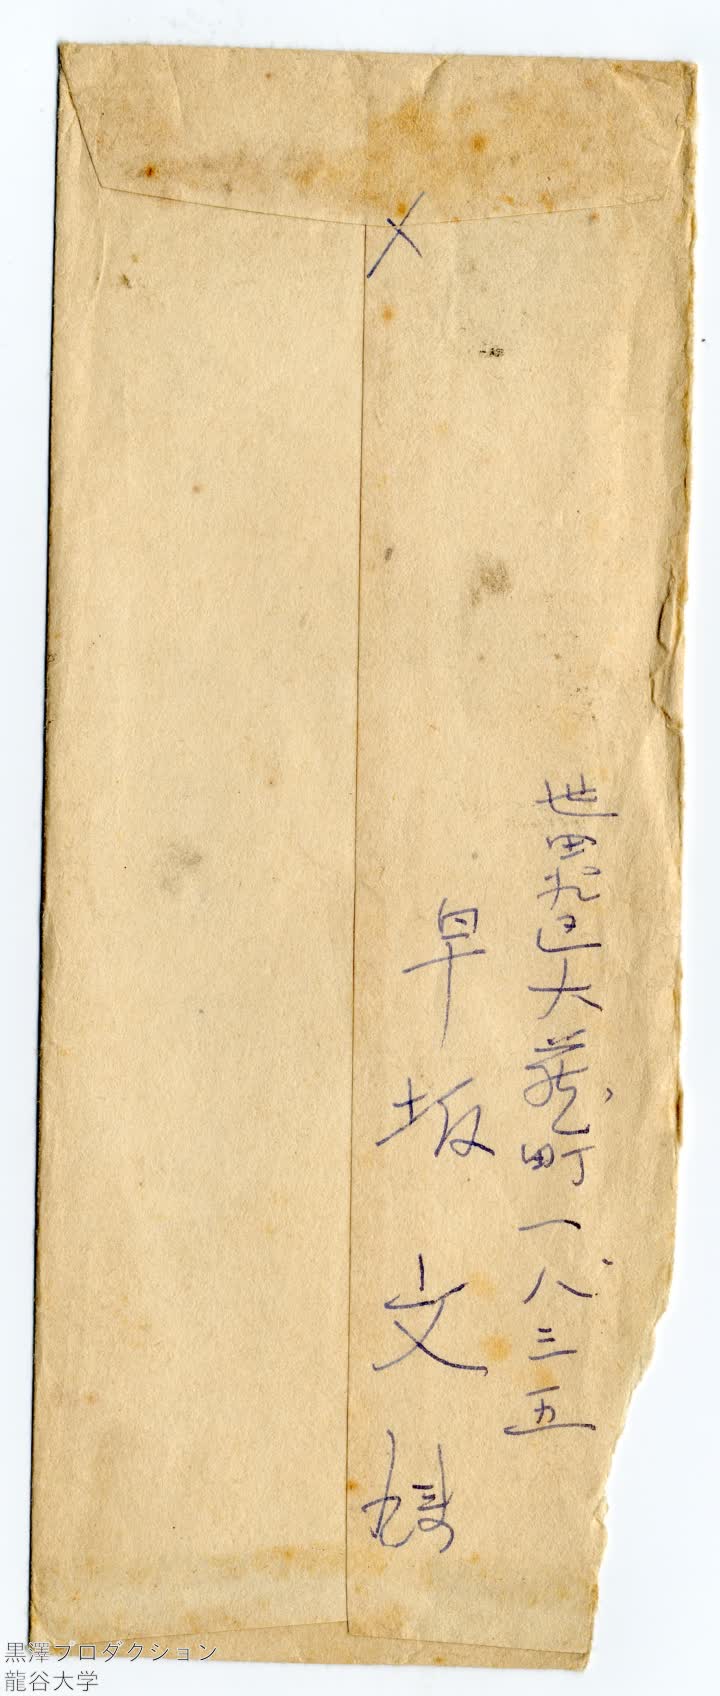 〆
世田谷区大蔵町一八三五
早坂文雄
黒澤プロダクション
龍谷大学